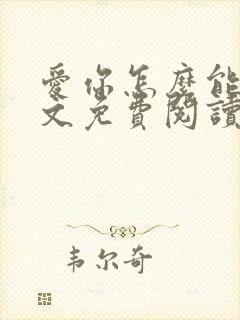 愛你怎麼能
文免費閱讀
韦尔奇